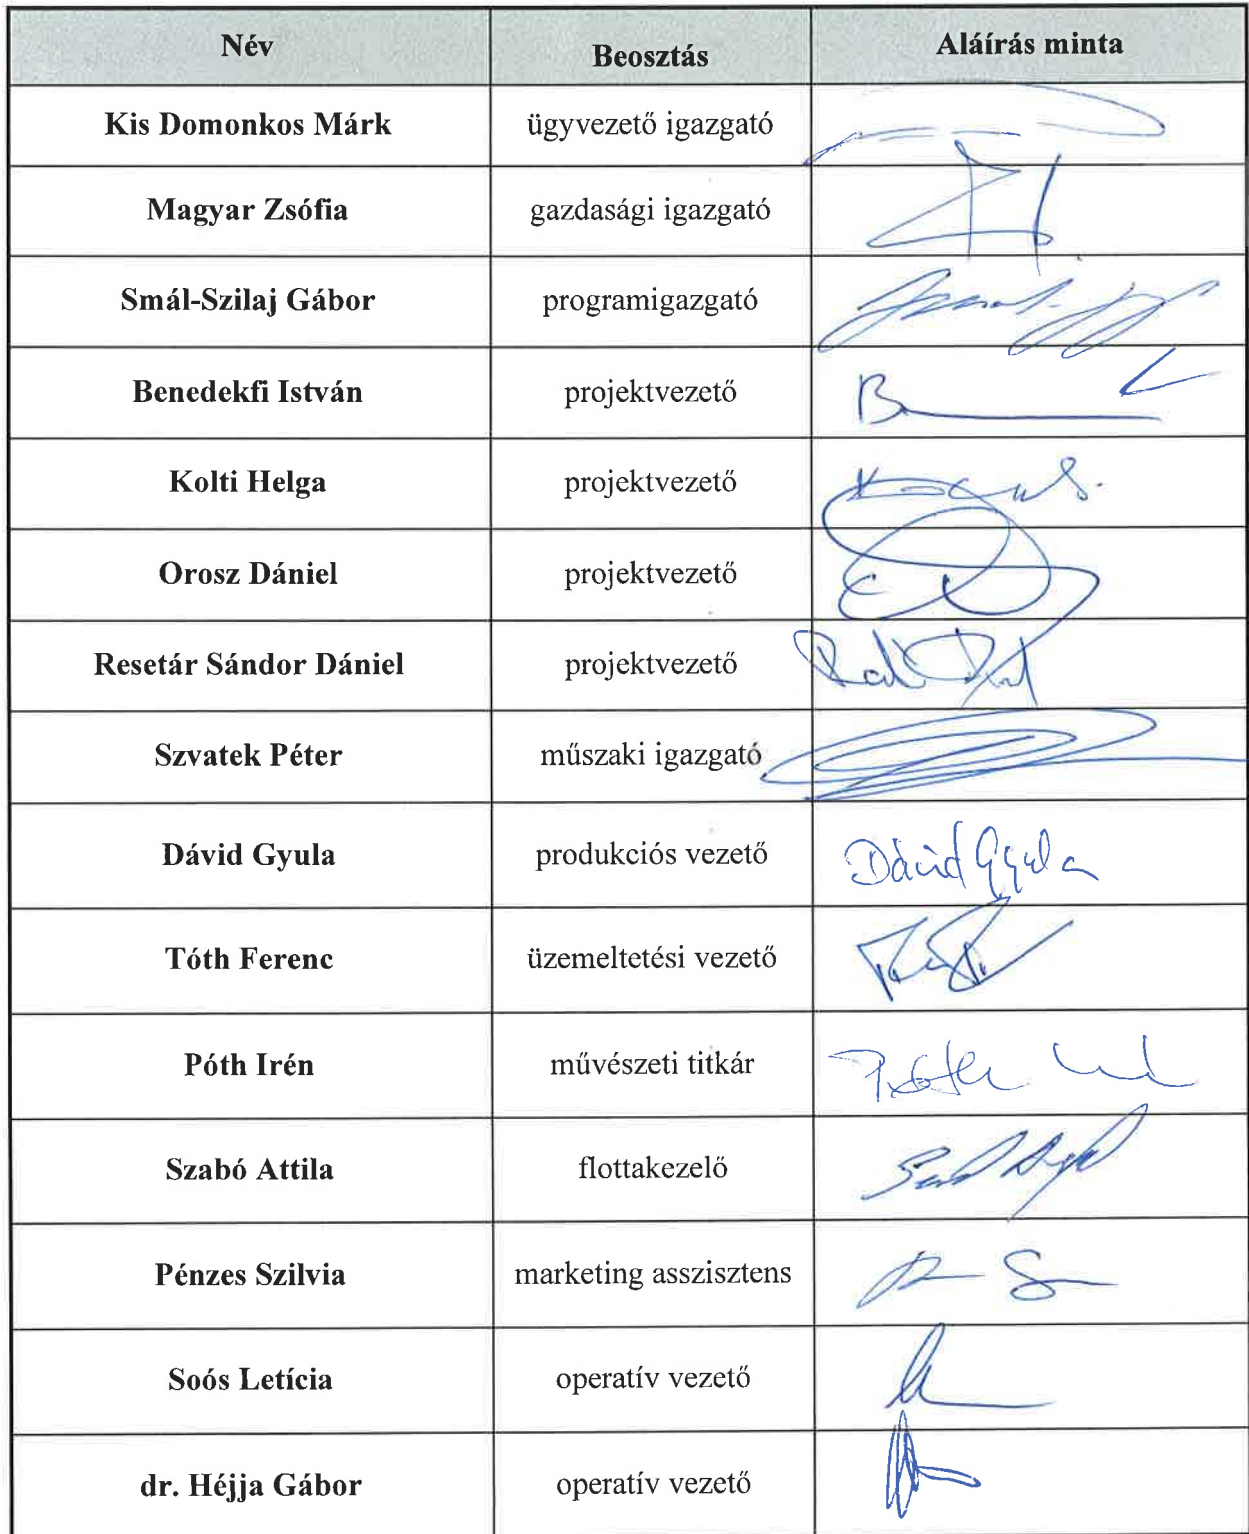 Név Beosztás Aláírás minta
Kis Domonkos Márk ügyvezető igazgató
Magyar Zsófia gazdasági igazgató
Smál-Szilaj Gábor programigazgató
Benedekfi István projektvezető
Kolti Helga projektvezető
Orosz Dániel projektvezető
Resetár Sándor Dániel projektvezető
Szvatek Péter műszaki igazgató
Dávid Gyula produkciós vezető Dávid Gyula
Tóth Ferenc üzemeltetési vezető
Póth Irén művészeti titkár
Szabó Attila flottakezelő
Pénzes Szilvia marketing asszisztens
Soós Letícia operatív vezető
dr. Héjja Gábor operatív vezető